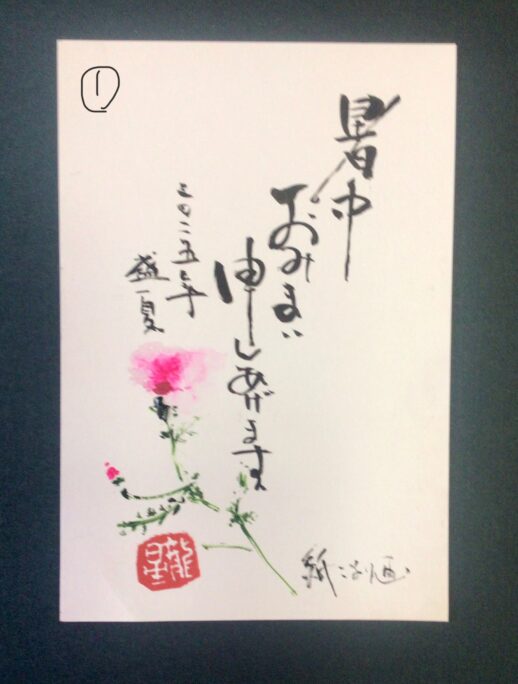 ①
暑中
おみまい
申しあげます
二〇二五年
盛夏
紙こより画